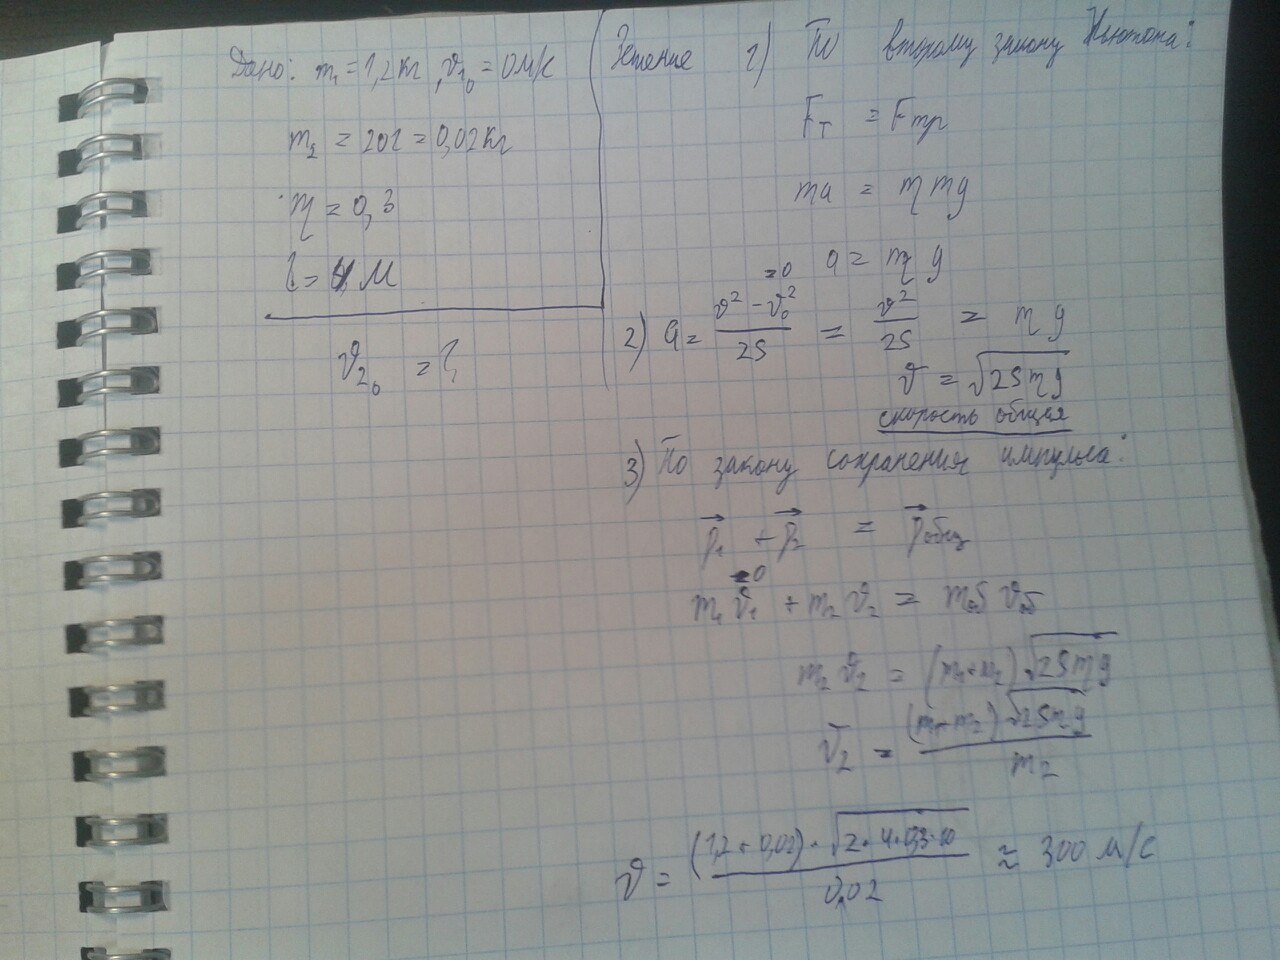 Дано: m₁ = 1,2 кг, ϑ₁₀ = 0 м/с
m₂ = 20 г = 0,02 кг
η = 0,3
l = 4 м
ϑ₂₀ = ?
Решение 1) По второму закону Ньютона:
Fт = Fтр
ma = ηmg
a = ηg
2) a = (ϑ² − ϑ₀²)/2S = ϑ²/2S = ηg
=0
ϑ = √(2Sηg)
скорость общая
3) По закону сохранения импульса:
p⃗₁ + p⃗₂ = p⃗общ
=0
m₁ϑ₁ + m₂ϑ₂ = mобϑоб
m₂ϑ₂ = (m₁+m₂)√(2Sηg)
ϑ₂ = (m₁+m₂)√(2Sηg)/m₂
ϑ = (1,2 + 0,02)·√(2·4·0,3·10)/0,02 ≈ 300 м/с